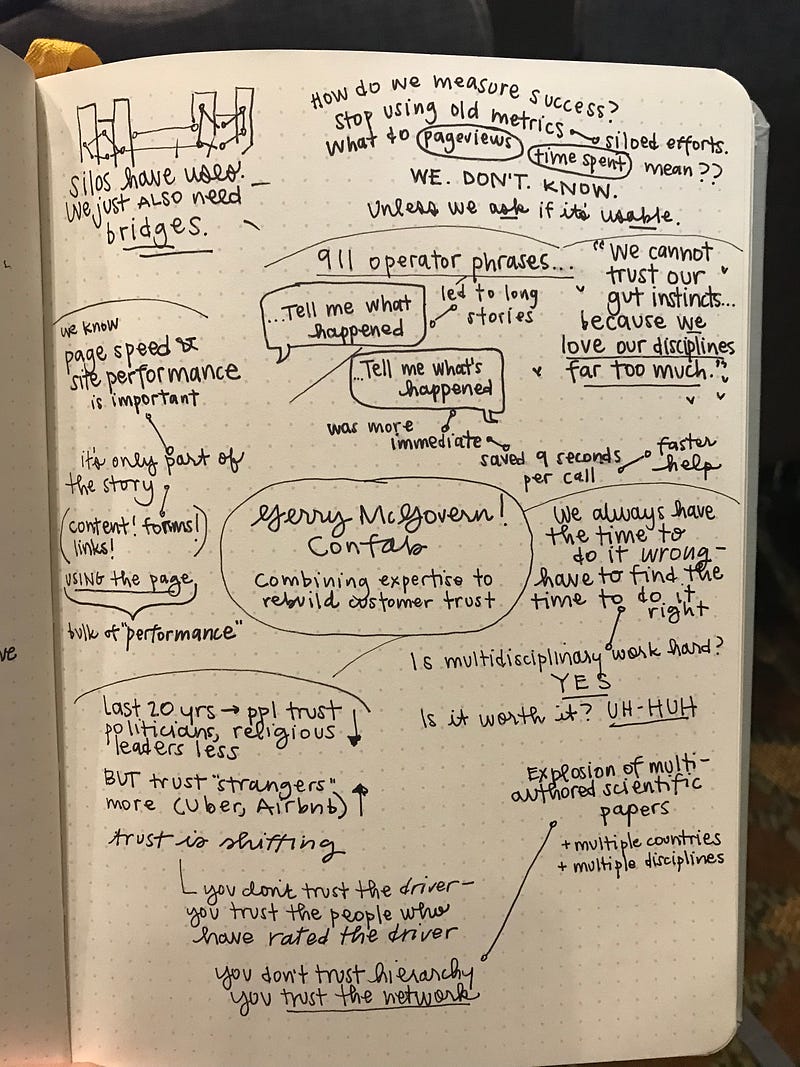 silos have uses.
We just ALSO need
bridges.
How do we measure success?
Stop using old metrics siloed efforts.
What do pageviews time spent mean??
WE. DON'T. KNOW.
Unless we ask if it's usable.
911 operator phrases...
...Tell me what
happened
led to long
stories
...Tell me what's
happened
was more
immediate
saved 9 seconds
per call
faster
help
"We cannot
trust our
gut instincts...
because we
love our disciplines
far too much."
we know
page speed &
site performance
is important
it's only part of
the story
(content! forms!
links!)
USING the page
bulk of "performance"
Gerry McGovern!
Confab
Combining expertise to
rebuild customer trust
We always have
the time to
do it wrong-
have to find the
time to do it
right
Is multidisciplinary work hard?
YES
Is it worth it? UH-HUH
Last 20 yrs → ppl trust
politicians, religious ↓
leaders less
BUT trust "strangers"
more (Uber, Airbnb) ↑
trust is shifting
you don't trust the driver—
you trust the people who
have rated the driver
you don't trust hierarchy
you trust the network
Explosion of multi-
authored scientific
papers
+ multiple countries
+ multiple disciplines
ve